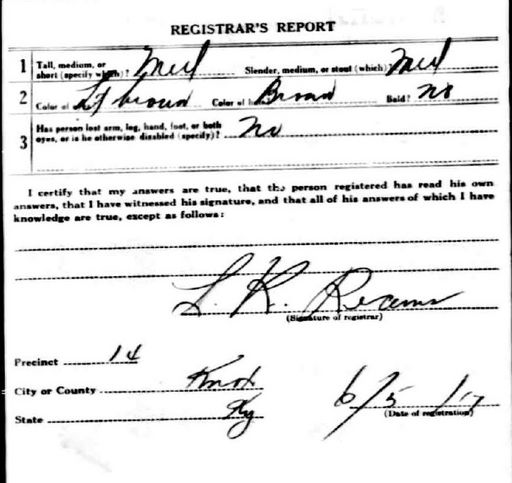 REGISTRAR'S REPORT
1 Tall, medium, or short (specify which)? Med Slender, medium, or stout (which)? Med
2 Color of eyes? Lt brown Color of hair? Brown Bald? No
3 Has person lost arm, leg, hand, foot, or both eyes, or is he otherwise disabled (specify)? No
I certify that my answers are true, that the person registered has read his own
answers, that I have witnessed his signature, and that all of his answers of which I have
knowledge are true, except as follows:
L. K. Reams
(Signature of registrar)
Precinct 14
City or County Knox
State Ky
6/5/17
(Date of registration)